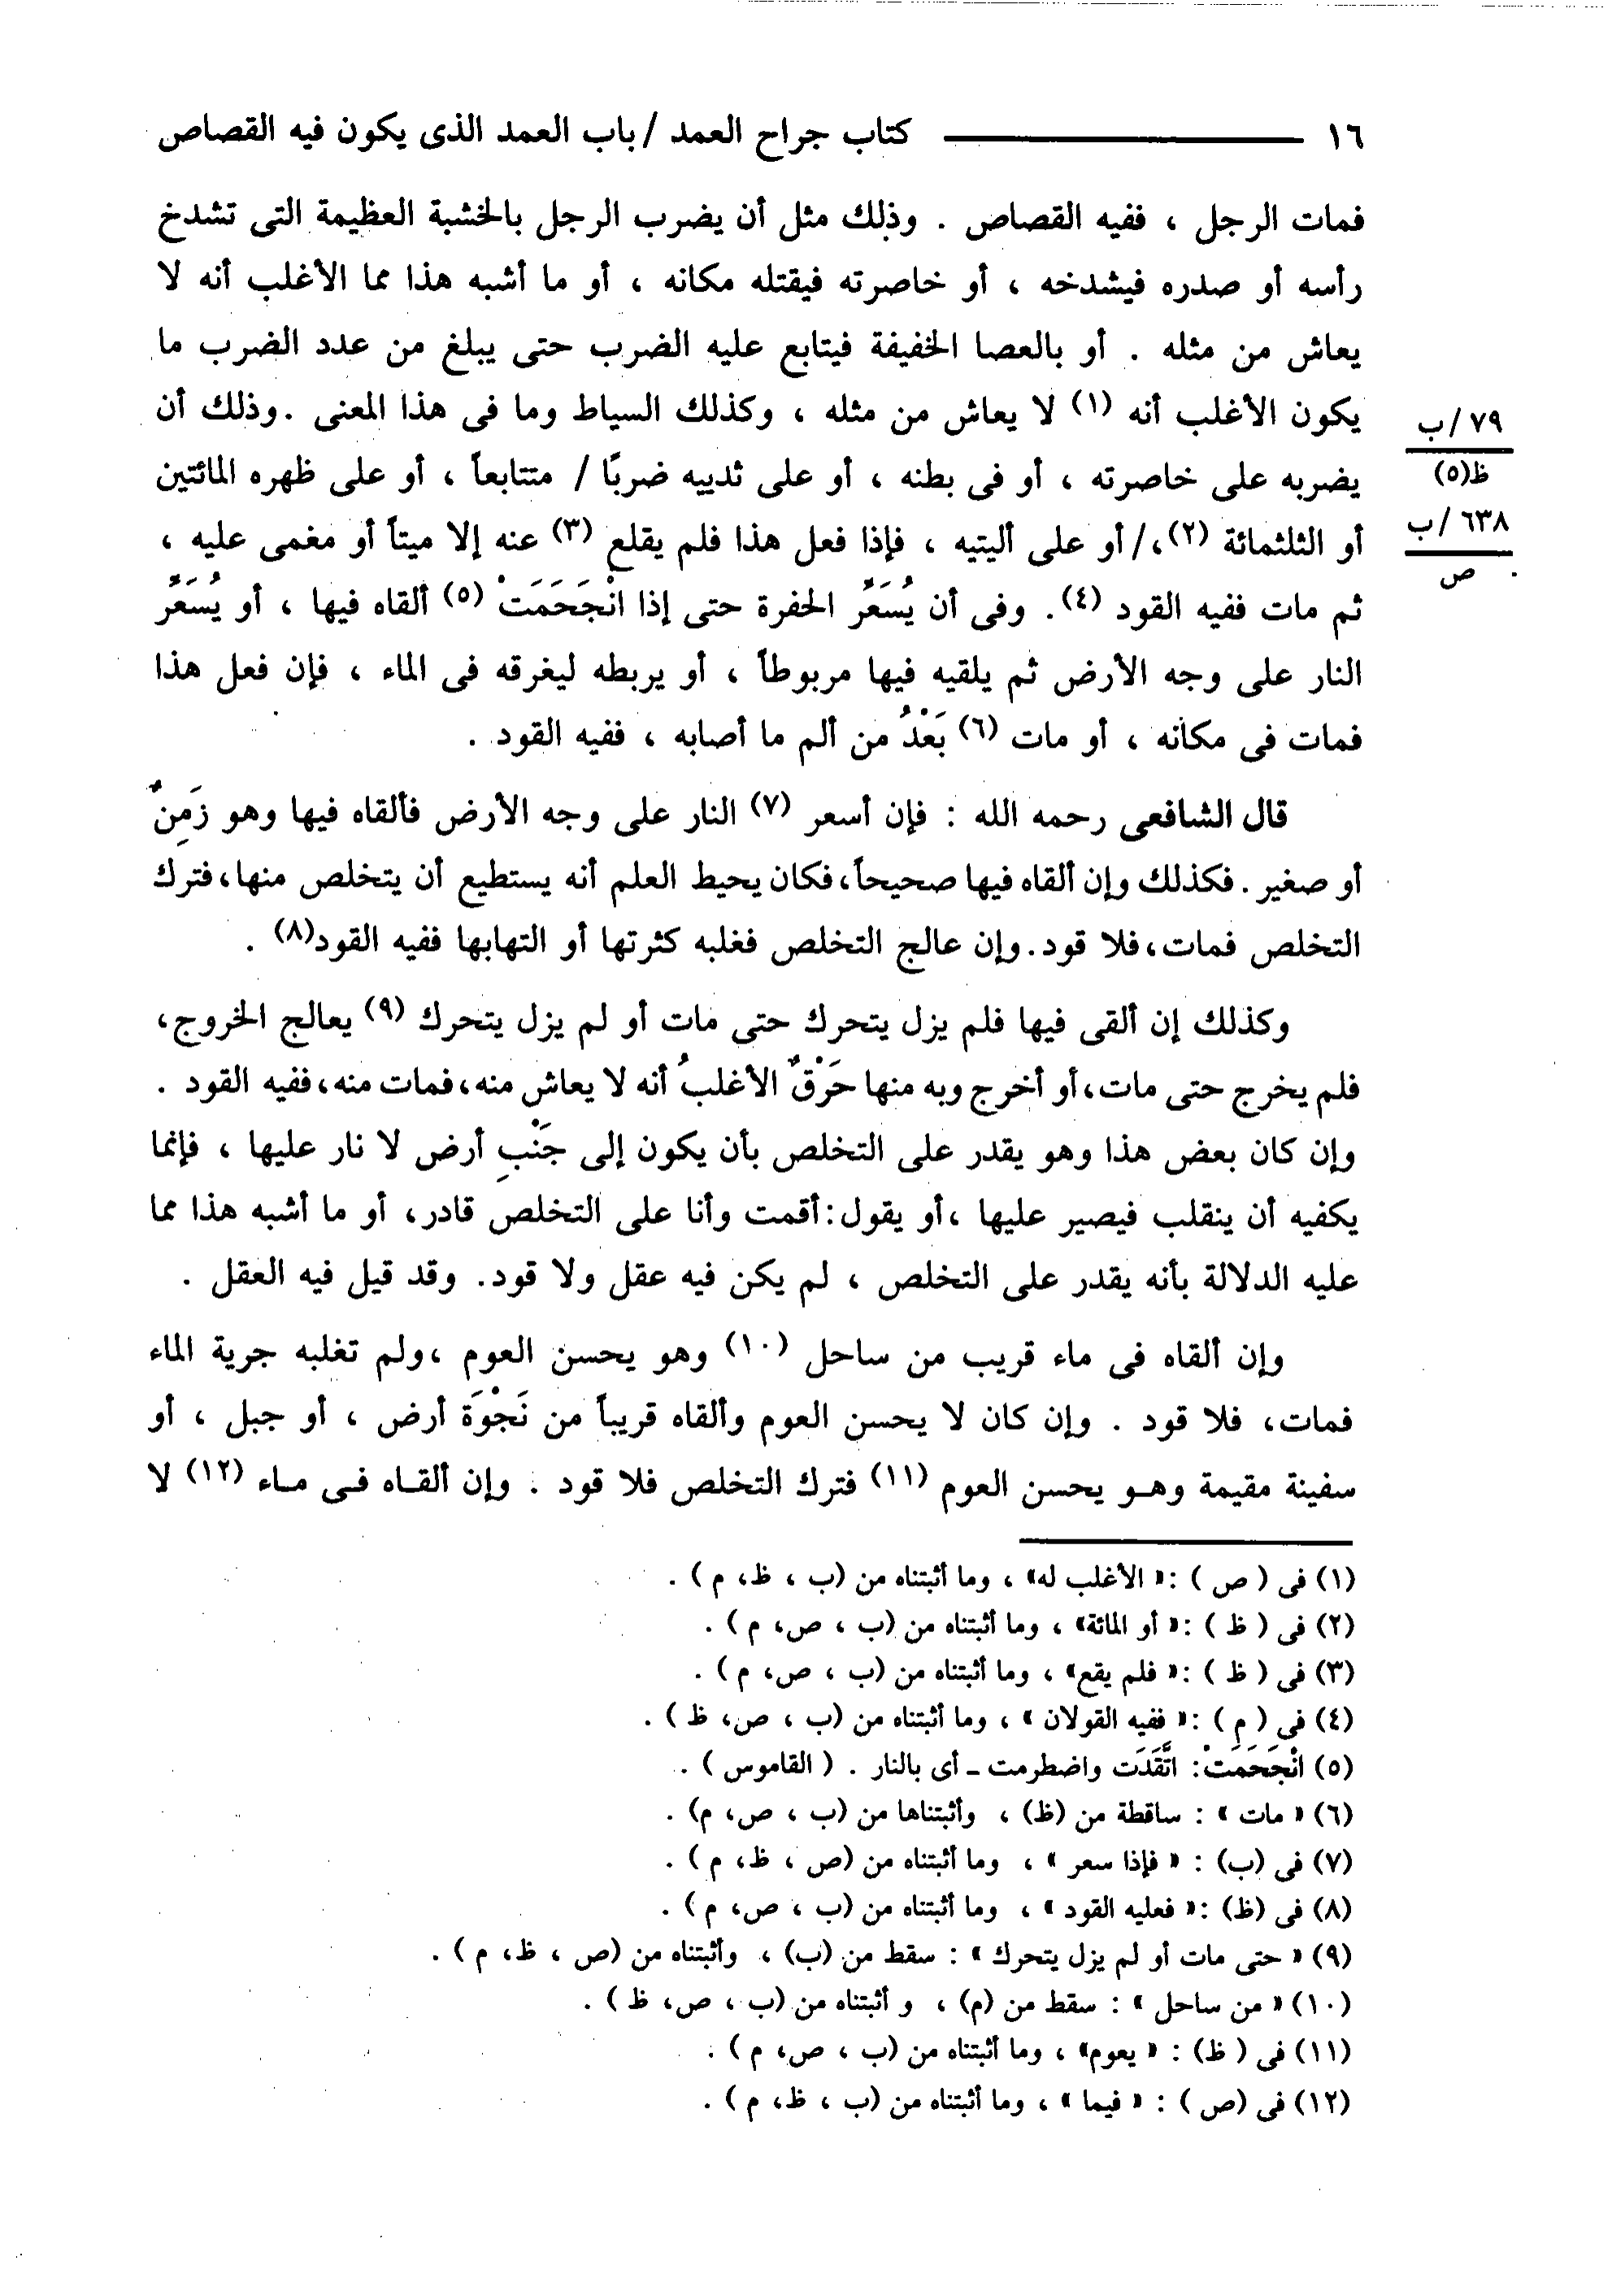 ١٦ ــــــــــ كتاب جراح العمد / باب العمد الذى يكون فيه القصاص
فمات الرجل ، ففيه القصاص . وذلك مثل أن يضرب الرجل بالخشبة العظيمة التى تشدخ
رأسه أو صدره فيشدخه ، أو خاصرته فيقتله مكانه ، أو ما أشبه هذا مما الأغلب أنه لا
يعاش من مثله . أو بالعصا الخفيفة فيتابع عليه الضرب حتى يبلغ من عدد الضرب ما
يكون الأغلب أنه (١) لا يعاش من مثله ، وكذلك السياط وما فى هذا المعنى .وذلك أن
٧٩/ب
ظ(٥)
يضربه على خاصرته ، أو فى بطنه ، أو على ثدييه ضربًا / متتابعاً ، أو على ظهره المائتين
أو الثلثمائة (٢)،/ أو على أليتيه ، فإذا فعل هذا فلم يقلع (٣) عنه إلا ميتاً أو مغمى عليه ،
٦٣٨/ب
ص
ثم مات ففيه القود (٤). وفى أن يُسَعَّر الحفرة حتى إذا انْجَحَمَتْ (٥) ألقاه فيها ، أو يُسَعَّر
النار على وجه الأرض ثم يلقيه فيها مربوطاً ، أو يربطه ليغرقه فى الماء ، فإن فعل هذا
فمات فى مكانه ، أو مات (٦) بَعْدُ من ألم ما أصابه ، ففيه القود .
قال الشافعى رحمه الله : فإن أسعر (٧) النار على وجه الأرض فألقاه فيها وهو زَمِنٌ
أو صغير . فكذلك وإن ألقاه فيها صحيحاً،فكان يحيط العلم أنه يستطيع أن يتخلص منها،فترك
التخلص فمات،فلا قود.وإن عالج التخلص فغلبه كثرتها أو التهابها ففيه القود(٨) .
وكذلك إن ألقى فيها فلم يزل يتحرك حتى مات أو لم يزل يتحرك (٩) يعالج الخروج،
فلم يخرج حتى مات،أو أخرج وبه منها حَرْقٌ الأغلبُ أنه لا يعاش منه،فمات منه،ففيه القود .
وإن كان بعض هذا وهو يقدر على التخلص بأن يكون إلى جَنْبِ أرض لا نار عليها ، فإنما
يكفيه أن ينقلب فيصير عليها ،أو يقول:أقمت وأنا على التخلص قادر، أو ما أشبه هذا مما
عليه الدلالة بأنه يقدر على التخلص ، لم يكن فيه عقل ولا قود. وقد قيل فيه العقل .
وإن ألقاه فى ماء قريب من ساحل (١٠) وهو يحسن العوم ،ولم تغلبه جرية الماء
فمات، فلا قود . وإن كان لا يحسن العوم وألقاه قريباً من نَجْوَة أرض ، أو جبل ، أو
سفينة مقيمة وهـو يحسن العوم (١١) فترك التخلص فلا قود . وإن ألقـاه فـى مـاء (١٢) لا
(١) فى ( ص ) :« الأغلب له» ، وما أثبتناه من (ب ، ظ، م ) .
(٢) فى ( ظ ) :« أو المائة» ، وما أثبتناه من (ب ، ص، م ) .
(٣) فى ( ظ ) :« فلم يقع» ، وما أثبتناه من (ب ، ص، م ) .
(٤) فى ( م ) :« ففيه القولان » ، وما أثبتناه من (ب ، ص، ظ ) .
(٥) انْجَحَمَتْ: اتَّقَدَت واضطرمت ـ أى بالنار . ( القاموس ) .
(٦) « مات » : ساقطة من (ظ) ، وأثبتناها من (ب ، ص، م) .
(٧) فى (ب) : « فإذا سعر » ، وما أثبتناه من (ص ، ظ، م ) .
(٨) فى (ظ) :« فعليه القود » ، وما أثبتناه من (ب ، ص، م ) .
(٩) « حتى مات أو لم يزل يتحرك » : سقط من (ب) ، وأثبتناه من (ص ، ظ، م ) .
(١٠) « من ساحل » : سقط من (م) ، و أثبتناه من (ب ، ص، ظ ) .
(١١) فى ( ظ) : « يعوم» ، وما أثبتناه من (ب ، ص، م ) .
(١٢) فى (ص ) : « فيما » ، وما أثبتناه من (ب ، ظ، م ) .